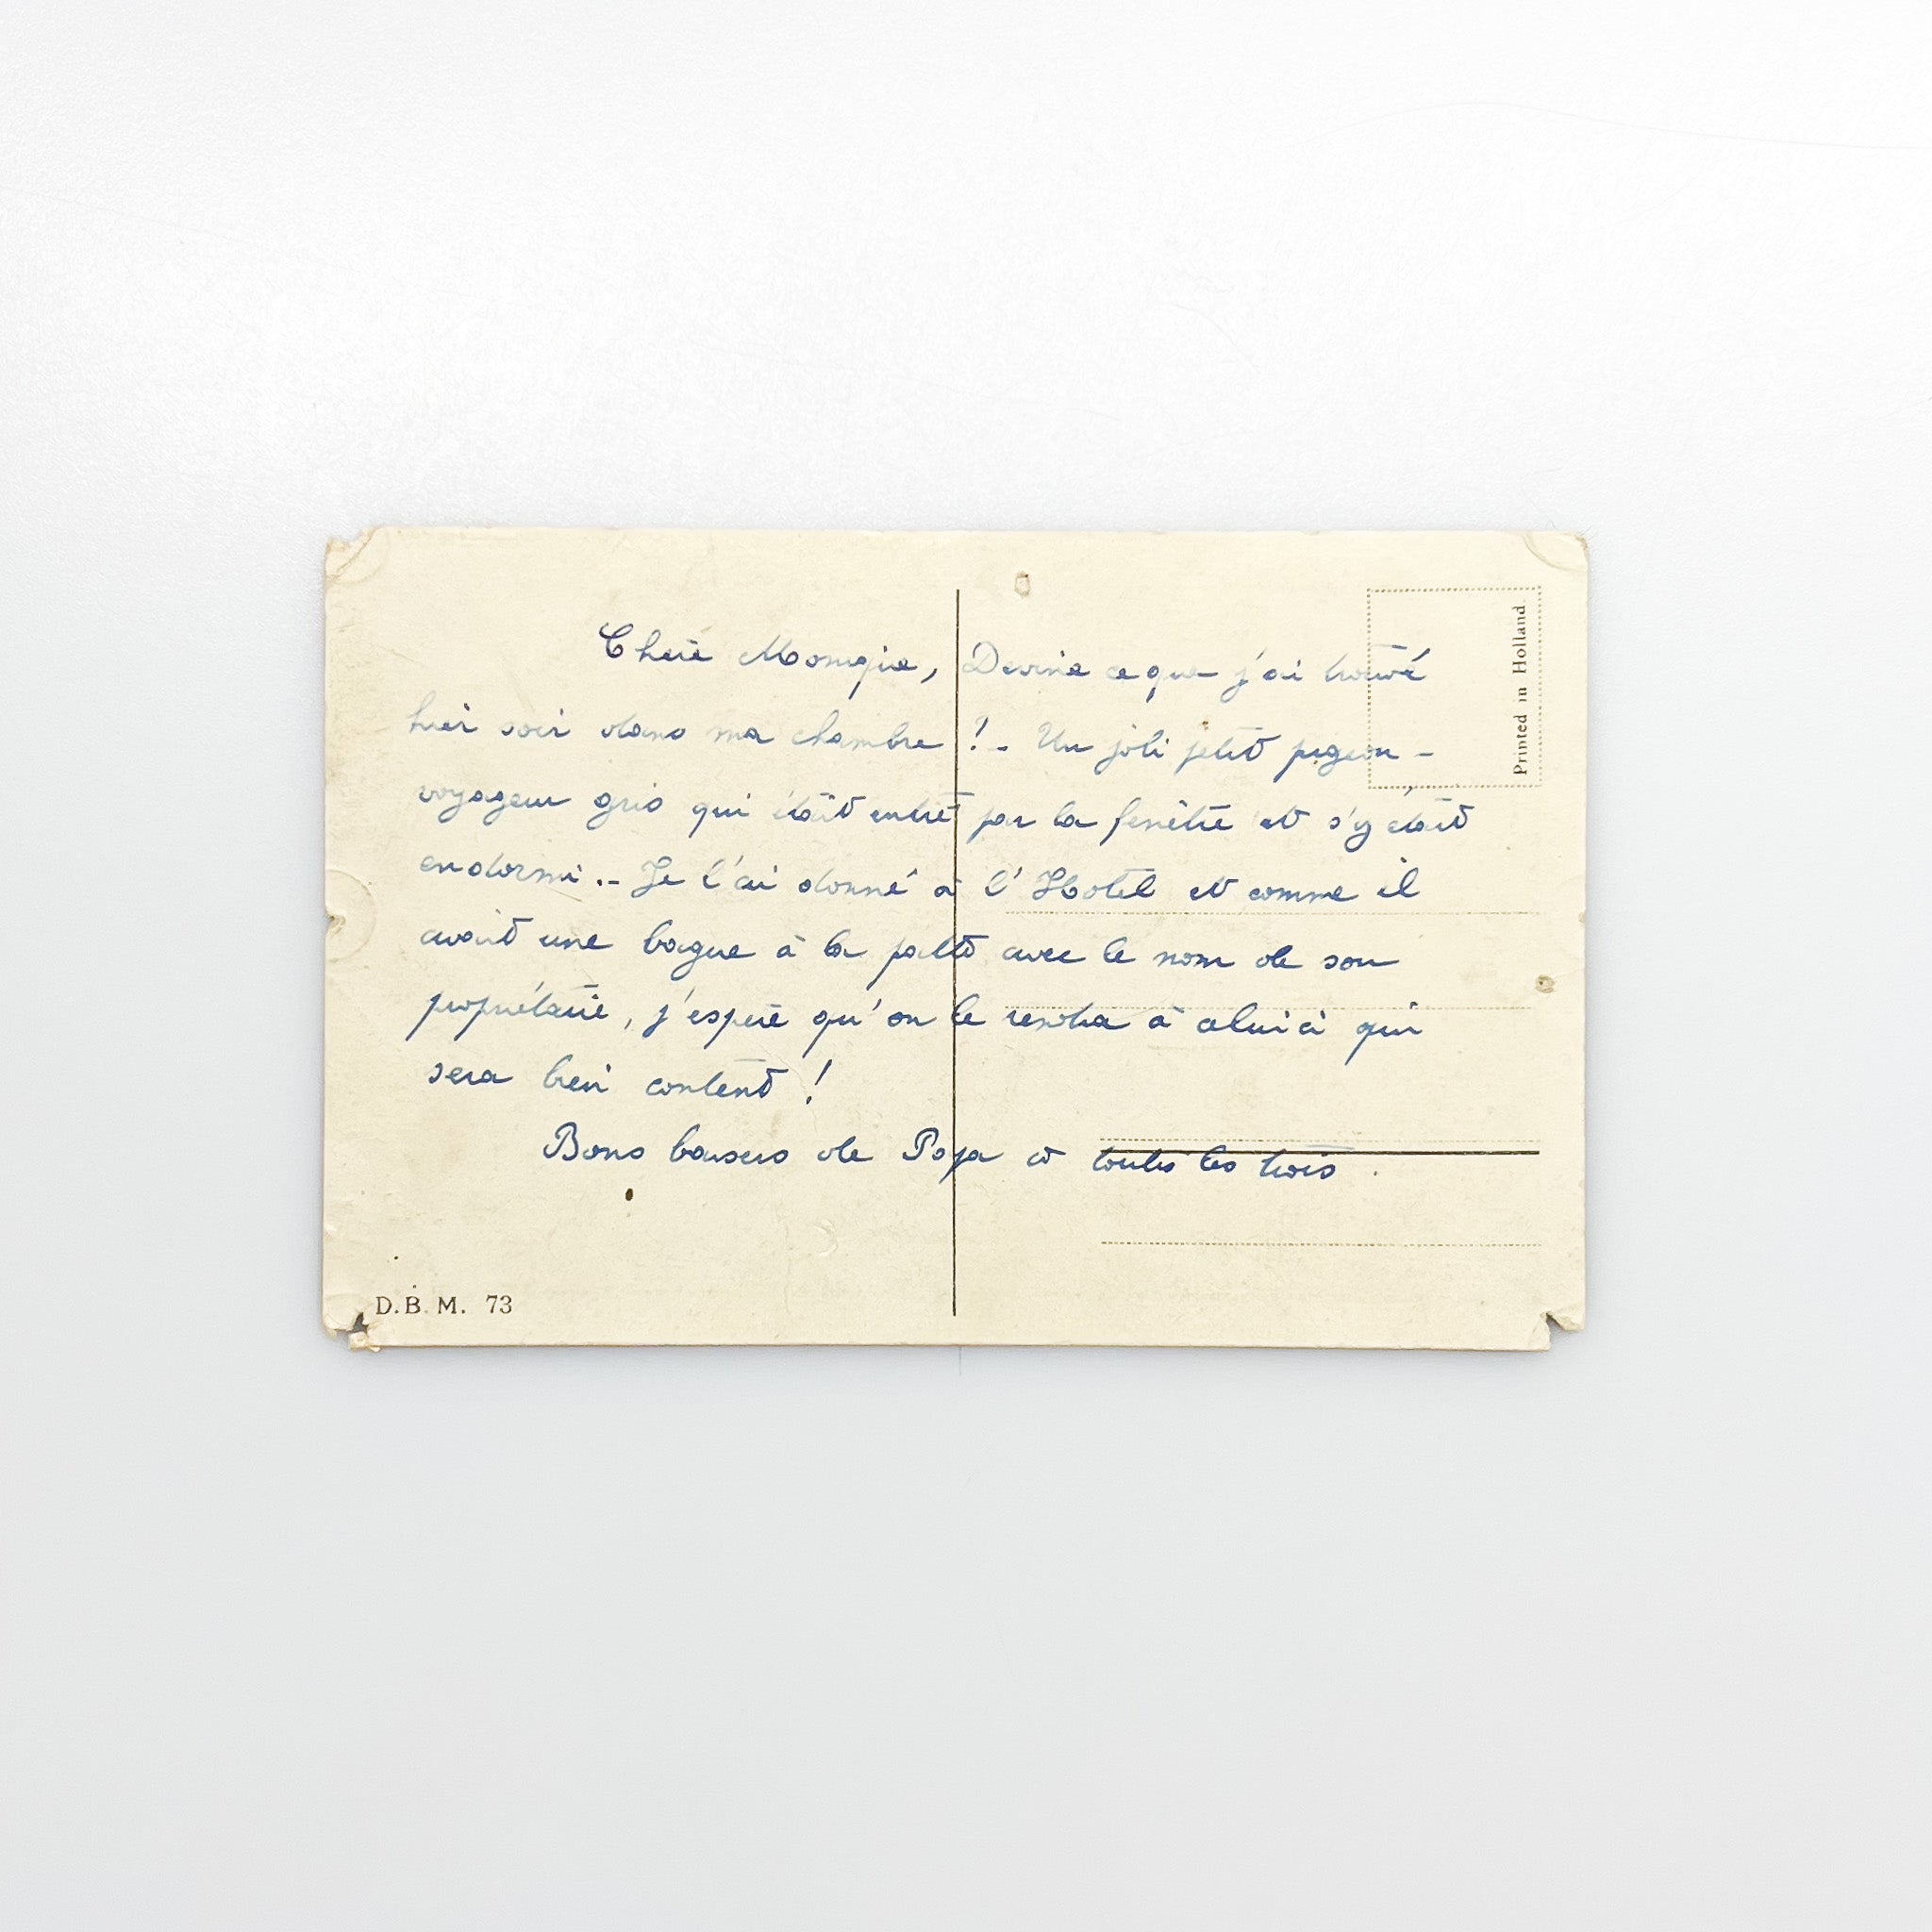 Chère Monique, Devine ce que j'ai trouvé
hier soir dans ma chambre ! - Un joli petit pigeon -
voyageur gris qui était entré par la fenêtre et s'y était
endormi .- Je l'ai donné à l'Hotel et comme il
avait une bague à la patte avec le nom de son
propriétaire, j'espère qu'on le rendra à celui ci qui
sera bien content !
Bons baisers de Papa à toutes les trois .
D.B.M. 73
Printed in Holland